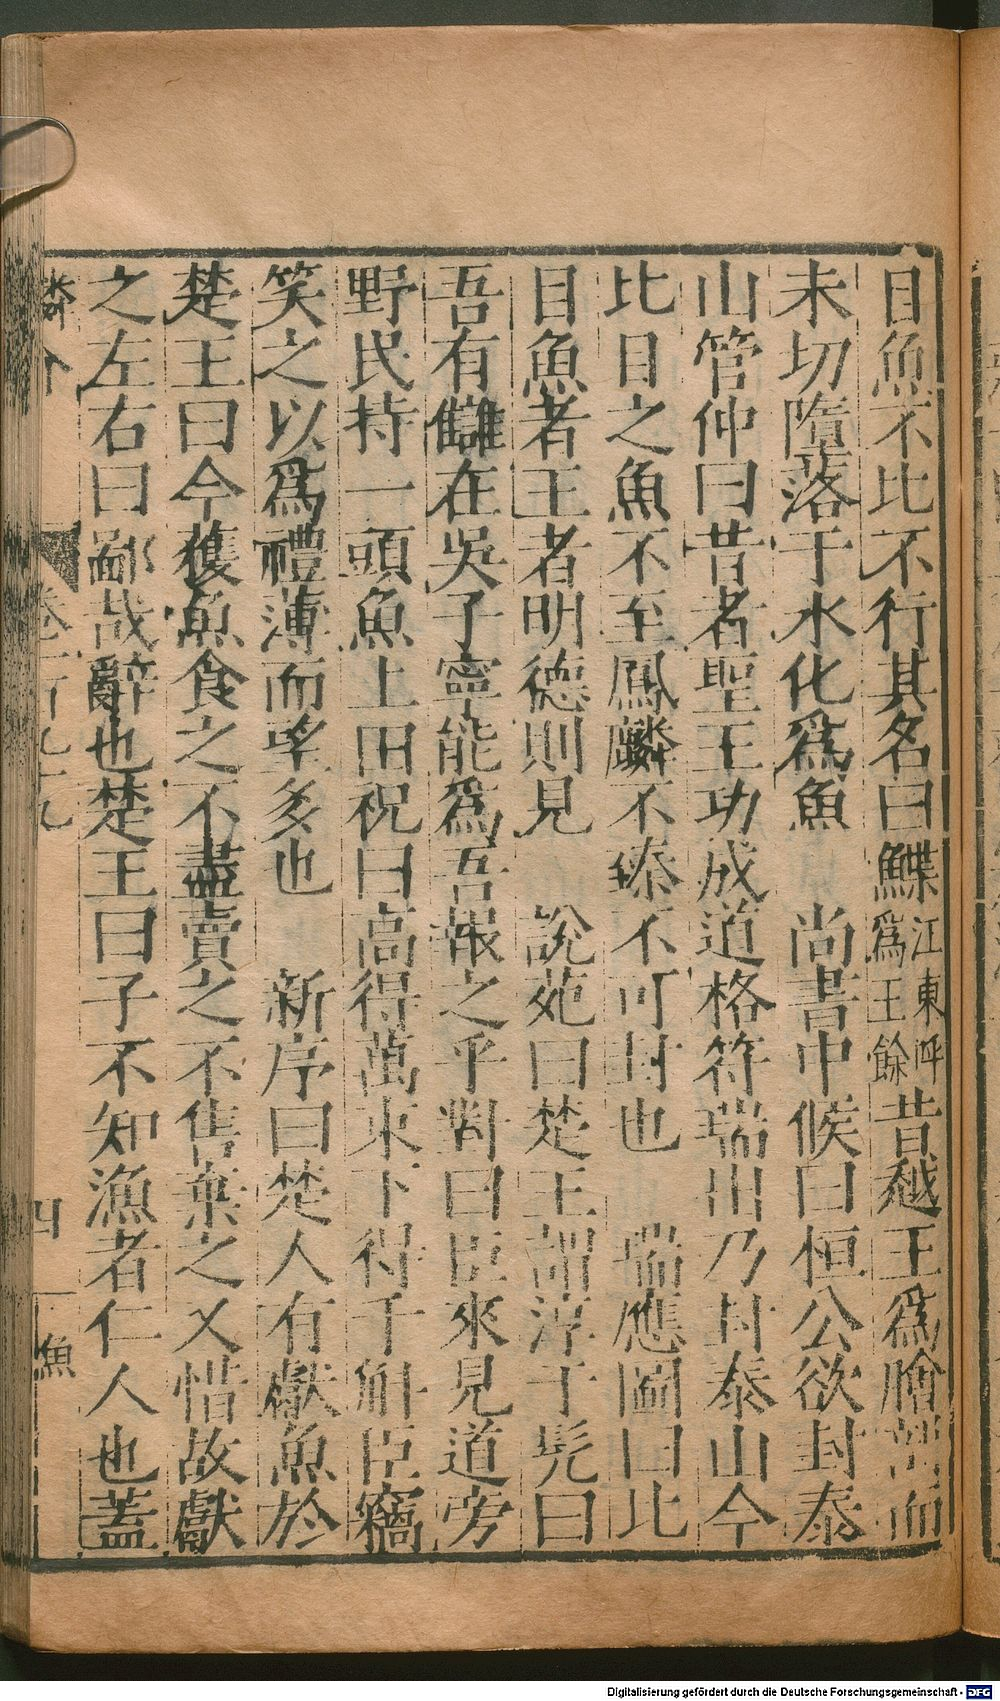 目魚不比不行其名曰鰈江東呼爲王餘昔越王爲膾而
未切墮落于水化爲魚　尚書中候曰桓公欲封泰
山管仲曰昔者聖王功成道格符瑞出乃封泰山今
比目之魚不至鳳麟不臻不可封也　瑞應圖曰比
目魚者王者明德則見　說苑曰楚王謂淳于髡曰
吾有讎在吳子寧能爲吾報之乎對曰臣來見道旁
野民持一頭魚上田祝曰高得萬束下得千斛臣竊
笑之以爲禮薄而望多也　新序曰楚人有獻魚於
楚王曰今獲魚食之不盡賣之不售棄之又惜故獻
之左右曰鄙哉辭也楚王曰子不知漁者仁人也蓋
四
魚
Digitalisierung gefördert durch die Deutsche Forschungsgemeinschaft - DFG